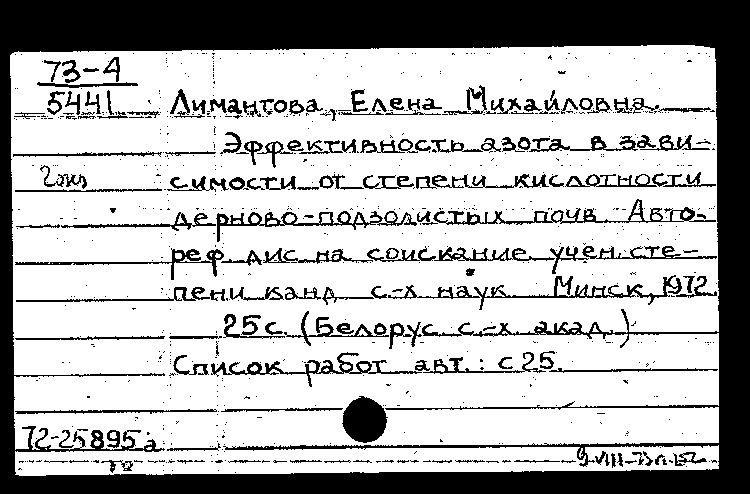 73-4
5441
Лимантова, Елена Михайловна.
Эффективность азота в зави-
2 экз
симости от степени кислотности
дерново-подзолистых почв. Авто-
реф. дис на соискание учен. сте-
пени канд с.-х наук Минск, 1972.
25 с. (Белорус с.-х. акад.)
Список работ авт.: с 25.
72-25895а